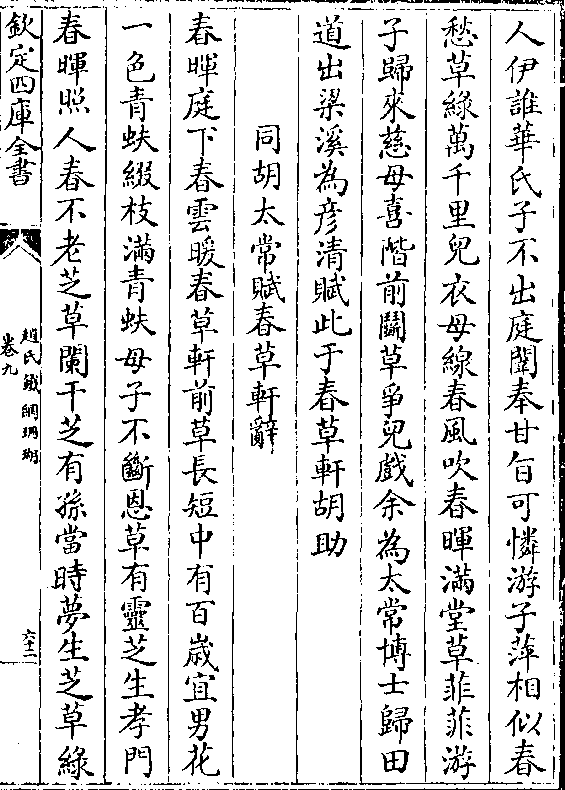 人伊誰華氏子不出庭闈奉甘旨可憐游子萍相似春
愁草綠萬千里兒衣母線春風吹春暉滿堂草菲菲游
子歸來慈母喜階前鬭草爭兒戲余為太常博士歸田
道出梁溪為彦清賦此于春草軒胡助
同胡太常賦春草軒辭
春暉庭下春雲暖春草軒前草長短中有百歲宜男花
一色青蚨綴枝滿青蚨母子不斷恩草有靈芝生孝門
春暉照人春不老芝草闌干芝有孫當時夢生芝草綠
欽定四庫全書
趙氏鐵網珊瑚
卷九
六十二